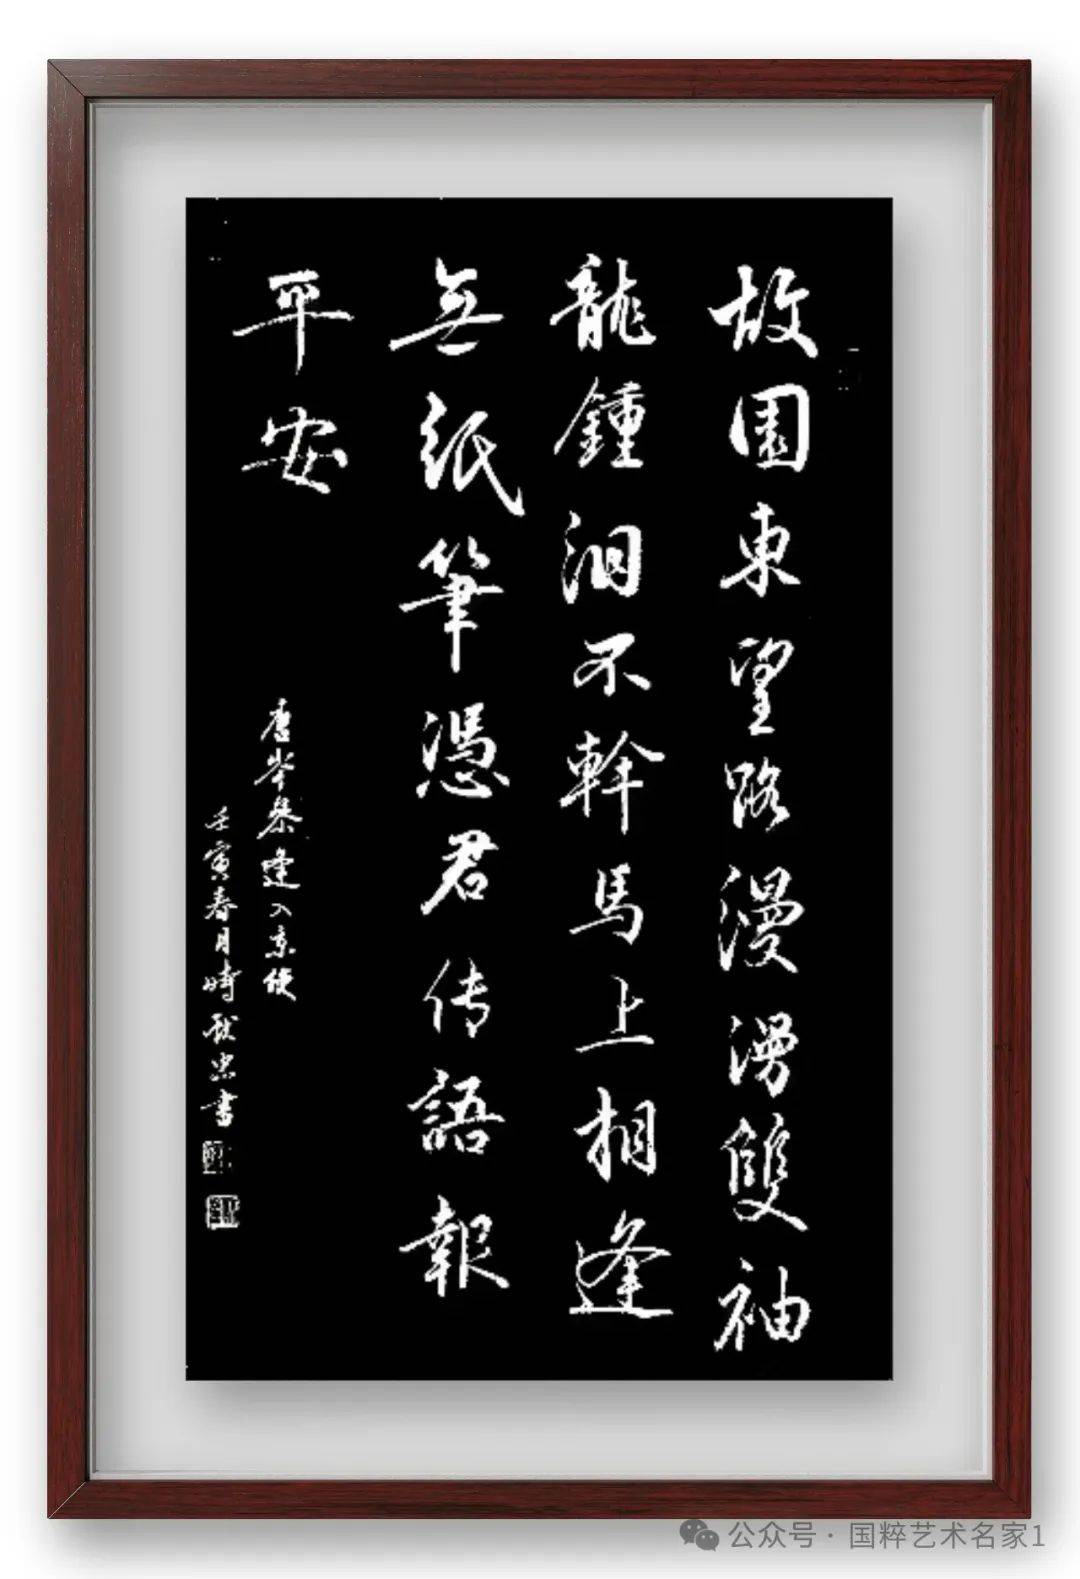 故園東望路漫漫雙袖
龍鍾泪不幹馬上相逢
無紙筆憑君传語報
平安
唐岑參逢入京使
壬寅春月時献忠書
公众号·国粹艺术名家1